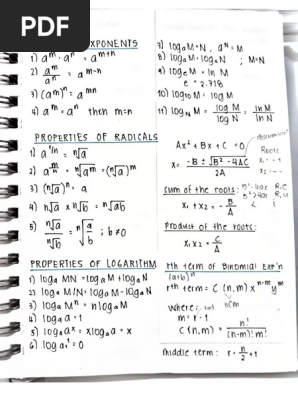 PDF
EXPONENTS
1) aᵐ·aⁿ = aᵐ⁺ⁿ
2) aᵐ/aⁿ = aᵐ⁻ⁿ
3) (aᵐ)ⁿ = aᵐⁿ
4) aᵐ = aⁿ then m=n
PROPERTIES OF RADICALS
1) a¹/ⁿ = ⁿ√a
2) aᵐ/ⁿ = ⁿ√aᵐ = (ⁿ√a)ᵐ
3) (ⁿ√a)ⁿ = a
4) ⁿ√a × ⁿ√b = ⁿ√ab
5) ⁿ√a / ⁿ√b = ⁿ√(a/b) ; b≠0
PROPERTIES OF LOGARITHM
1) logₐ MN = logₐ M + logₐ N
2) logₐ M/N = logₐ M - logₐ N
3) logₐ Mⁿ = n logₐ M
4) logₐ a = 1
5) logₐ aˣ = x logₐ a = x
6) logₐ 1 = 0
7) logₐ M = N , aᴺ = M
8) logₐ M = logₐ N ; M=N
9) logₑ M = ln M
e = 2.718
10) log₁₀ M = log M
11) log_N M = log M / log N = ln M / ln N
Ax² + Bx + C = 0
Roots
x = -B ± √B² - 4AC / 2A
x₁ =
x₂ =
Sum of the roots:
x₁ + x₂ = -B/A
Product of the roots:
x₁x₂ = C/A
rth term of Binomial Exp'n
(a+b)ⁿ
rth term = C (n,m) xⁿ⁻ᵐ yᵐ
nCm
where:
m = r-1
C (n,m) = n! / (n-m)! m!
middle term: r = n/2 + 1